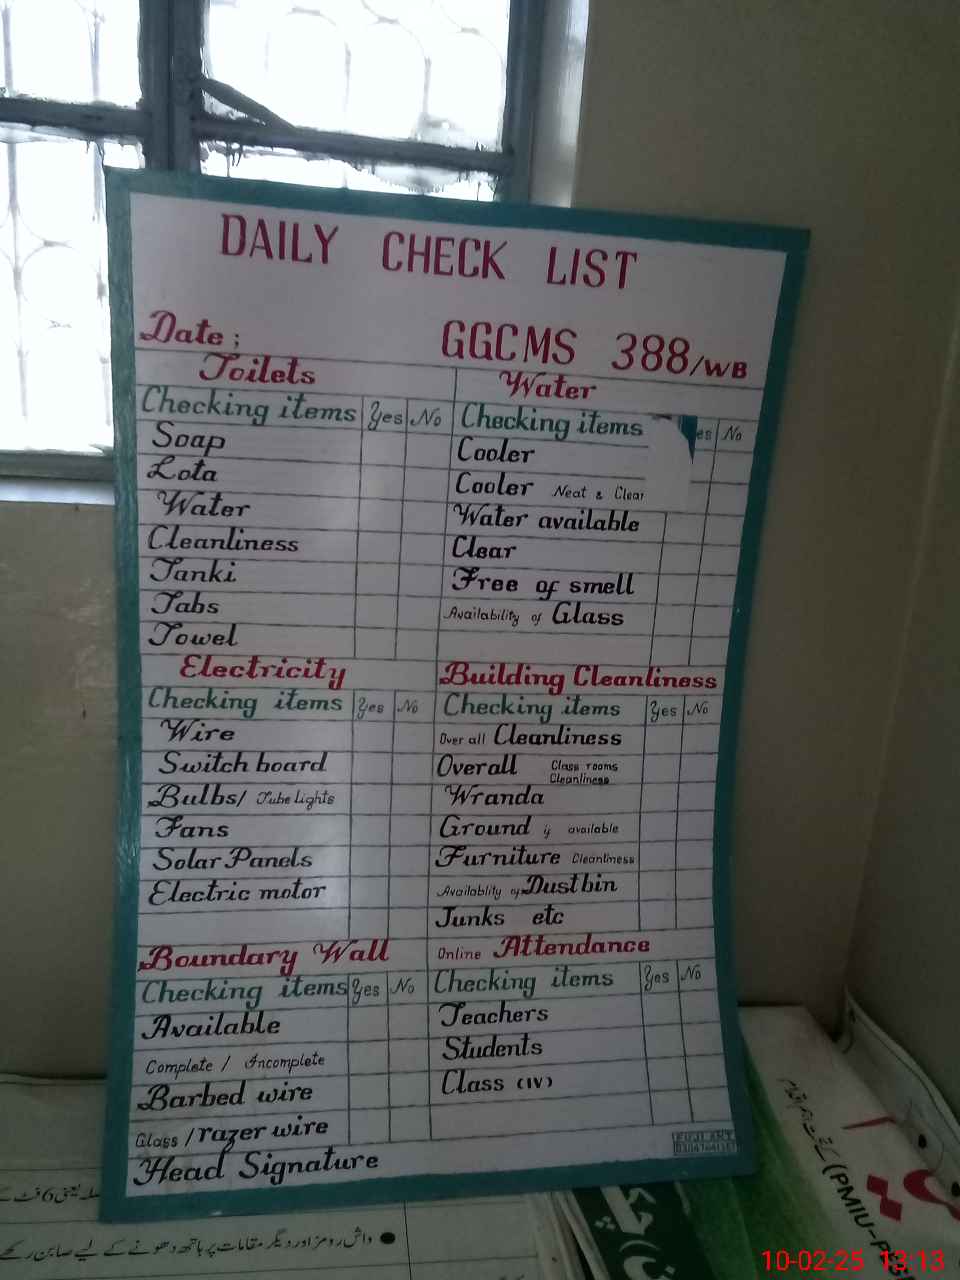 DAILY CHECK LIST
Date ; GGCMS 388/WB
Toilets
Checking items Yes No
Soap
Lota
Water
Cleanliness
Tanki
Tabs
Towel
Water
Checking items es No
Cooler
Cooler Neat & Clear
Water available
Clear
Free of smell
Availability of Glass
Electricity
Checking items Yes No
Wire
Switch board
Bulbs/ Tube Lights
Fans
Solar Panels
Electric motor
Building Cleanliness
Checking items Yes No
Over all Cleanliness
Overall Class rooms
Cleanliness
Wranda
Ground if available
Furniture Cleanliness
Availablity of Dustbin
Junks etc
Boundary Wall
Checking items Yes No
Available
Complete / Incomplete
Barbed wire
Glass / razer wire
Online Attendance
Checking items Yes No
Teachers
Students
Class (IV)
Head Signature
یعنی 6 فٹ کے
● واش رومز اور دیگر مقامات پر ہاتھ دھونے کے لیے صابن رکھے
(PMIU-P
10-02-25 13:13